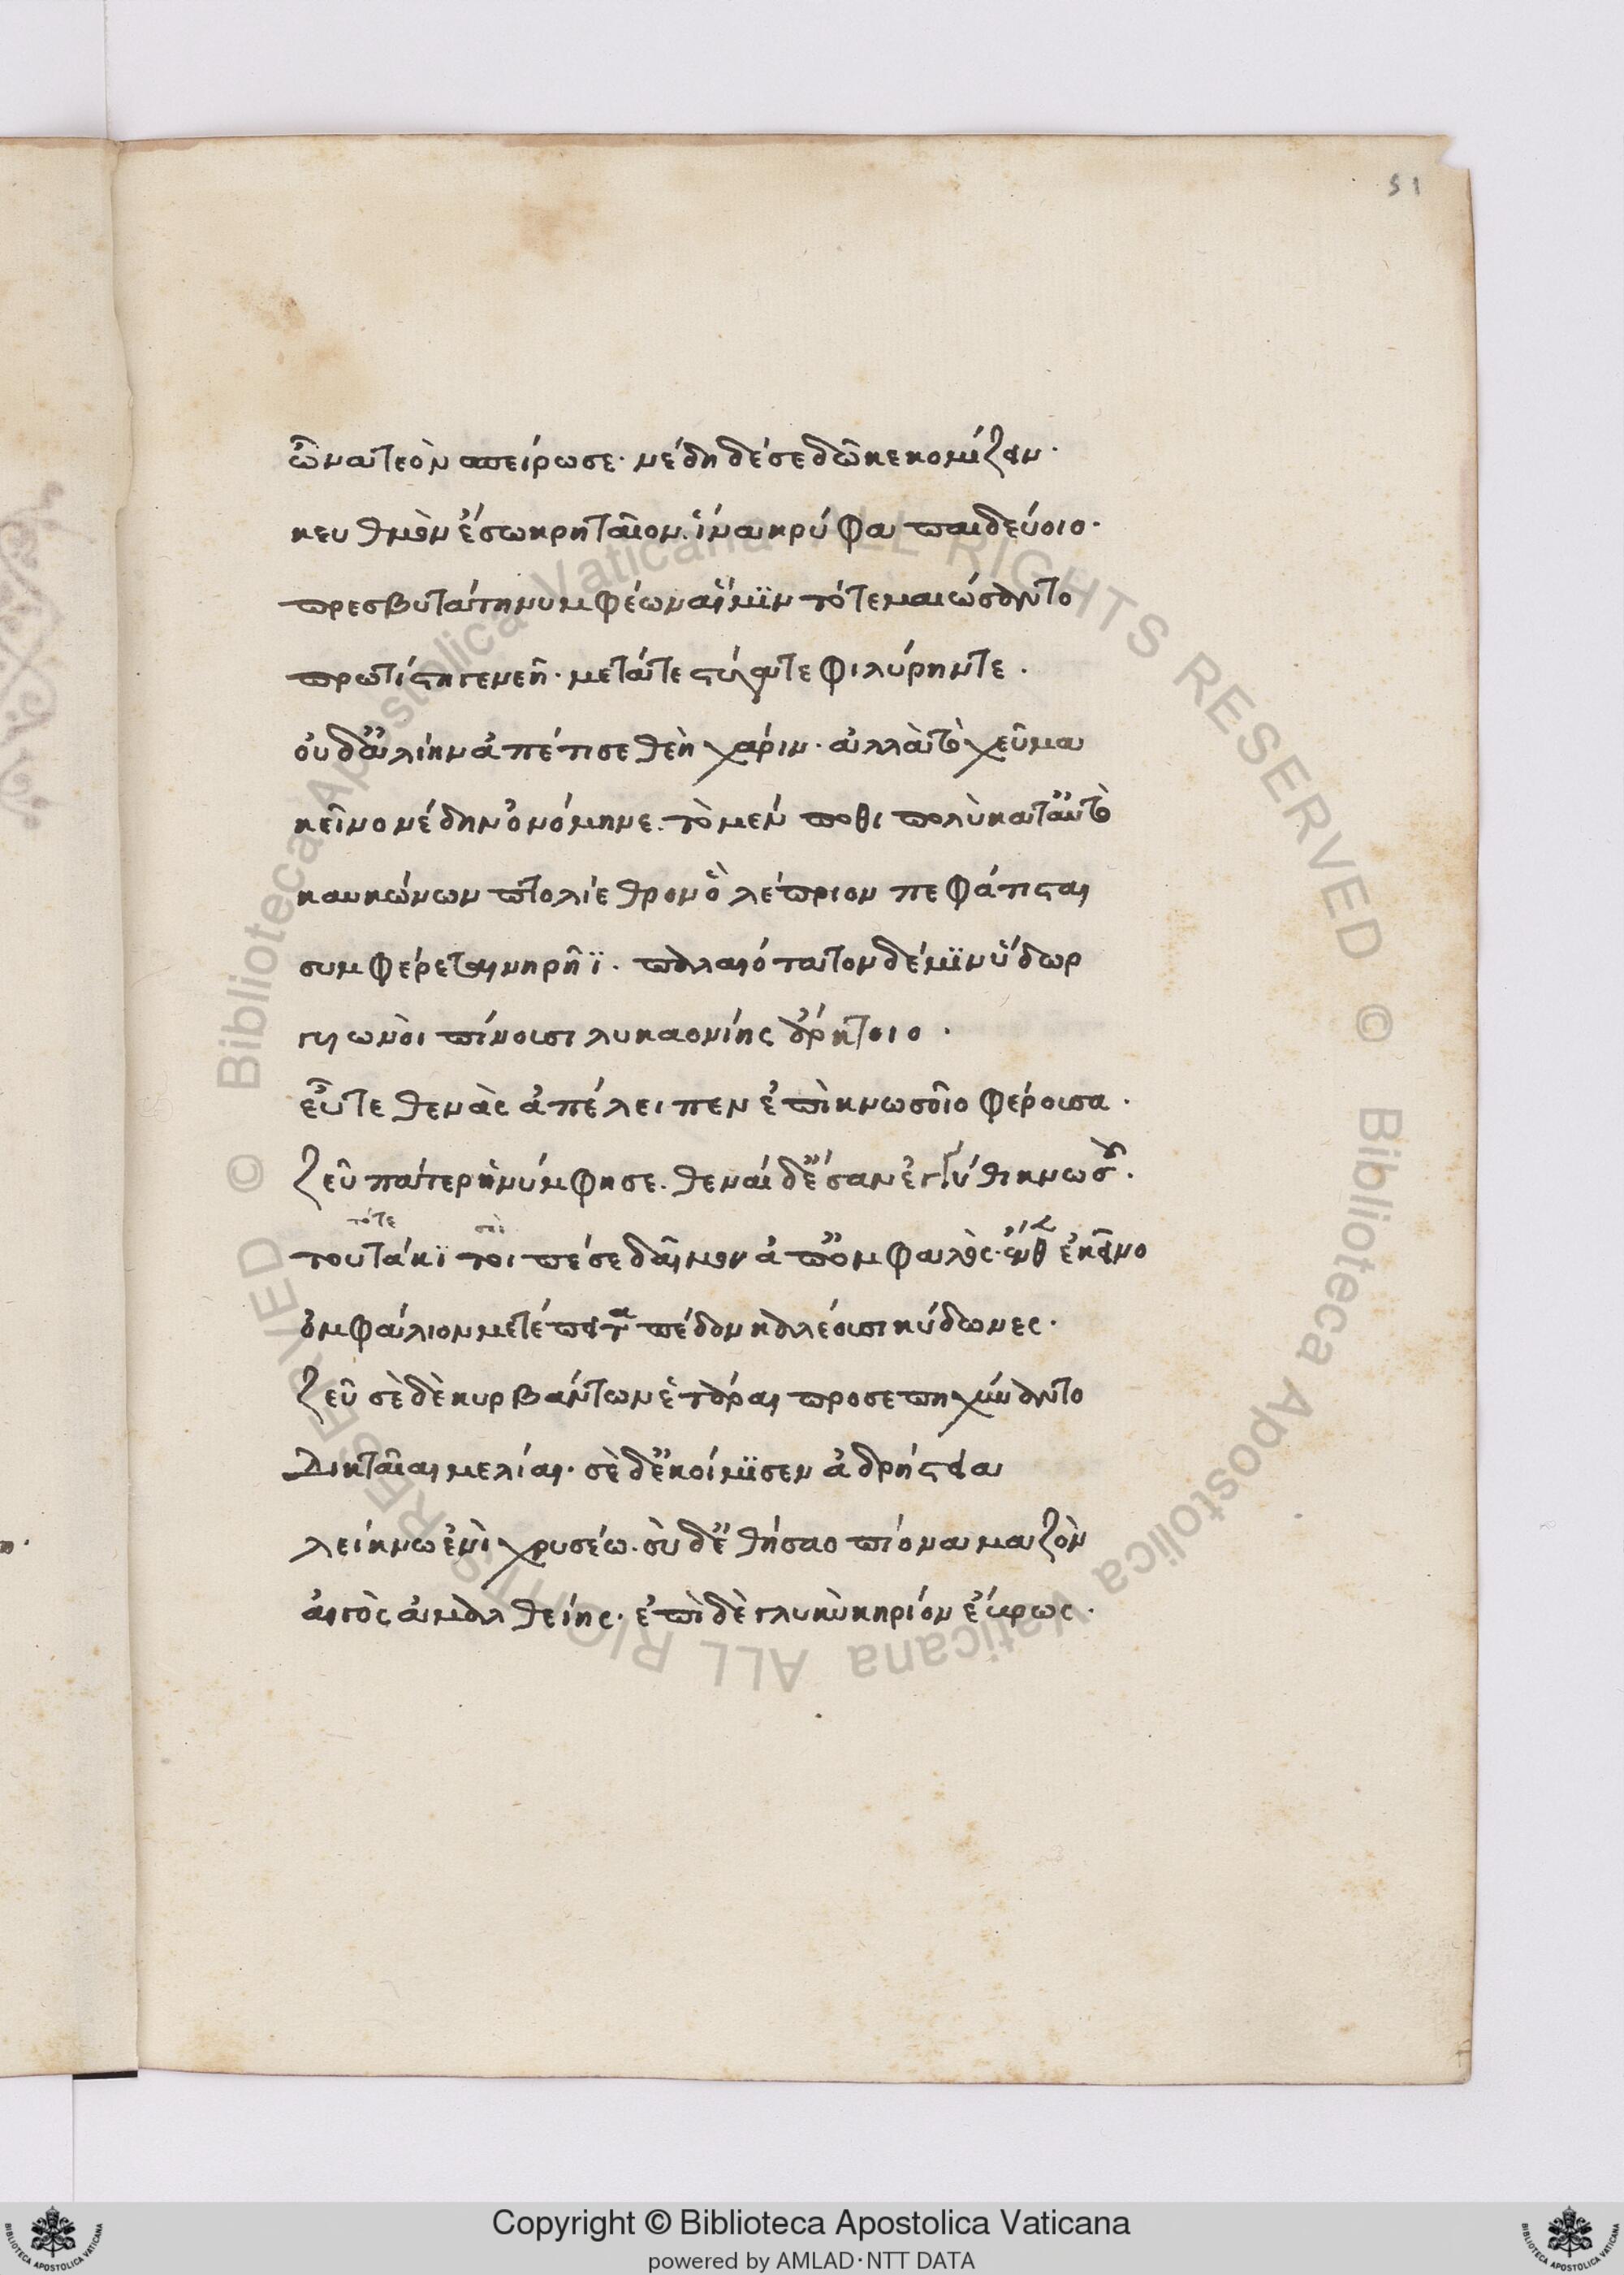 51
ὦνα τεὸν σπείρωσε· νέδη δέ σε δῶκε κομίζειν·
κευθμὸν ἔσω κρηταῖον. ἵνα κρύφα παιδεύοιο·
πρεσβυτάτη νυμφέων αἵ μϊν τότε μαιώσαντο
πρωτίστη γενεῆ· μετά τε στύγα τε φιλύρην τε.
οὐδ' ἁλίην ἀπέτισε θεὴ χάριν· ἀλλὰ τὸ χεῦμα
κεῖνο νέδην ὀνόμηνε. τὸ μέν ποθι πολὺ κατ' αὐτὸ
καυκώνων πτολίεθρον ὃ λέπριον πεφάτισται
συμφέρεται νηρῆϊ. παλαιότατον δέ μϊν ὕδωρ
γυιωνοὶ πίνουσι λυκαονίης ἄρκτοιο.
εὖτε θενὰς ἀπέλειπεν ἐπὶ κνωσοῖο φέρουσα.
ζεῦ πάτερ ἡ νύμφη σε. θεναὶ δ' ἔσαν ἐγγύθι κνωσοῦ.
τότε
τουτάκϊ τοι πέσε δαῖμον ἀπ' ὀμφαλὸς· ἔνθεν ἐκεῖνο
ὀμφάλιον μετέπειτα πέδον καλέουσι κύδωνες.
ζεῦ σὲ δὲ κυρβάντων ἑτάραι προσεπηχύναντο
Δικταῖαι μελίαι· σὲ δ' ἐκοίμϊσεν ἀδρήστεια
λείκνω ἐνὶ χρυσέω. σὺ δ' ἐθήσαο πίονα μαζὸν
αἰγὸς ἀμαλθείης· ἐπὶ δὲ γλυκὺ κηρίον ἔβρως.
Copyright © Biblioteca Apostolica Vaticana
powered by AMLAD·NTT DATA
© Biblioteca Apostolica Vaticana ALL RIGHTS RESERVED © Biblioteca Apostolica Vaticana ALL RIGHTS RESERVED